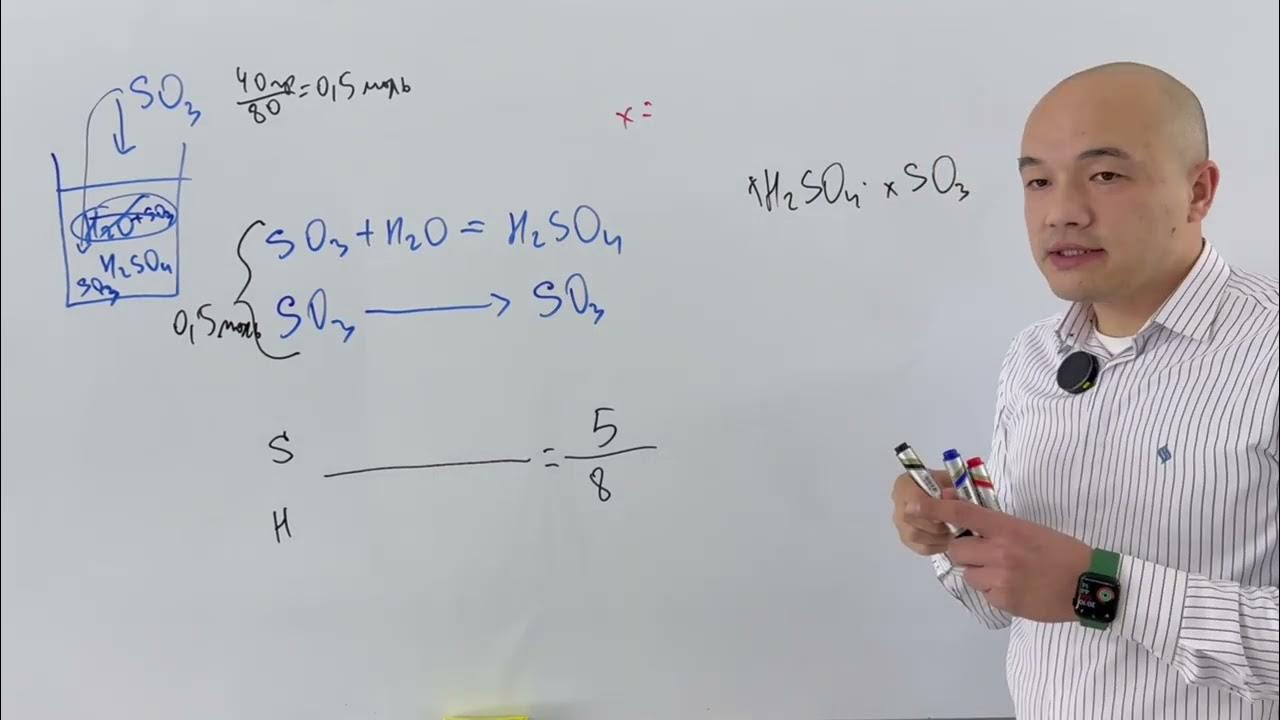 SO₃
40гр/80 = 0,5 моль
x =
xH₂SO₄ · xSO₃
H₂O + SO₃
H₂SO₄
SO₃
SO₃ + H₂O = H₂SO₄
0,5 моль
SO₃ → SO₃
S
= 5/8
H